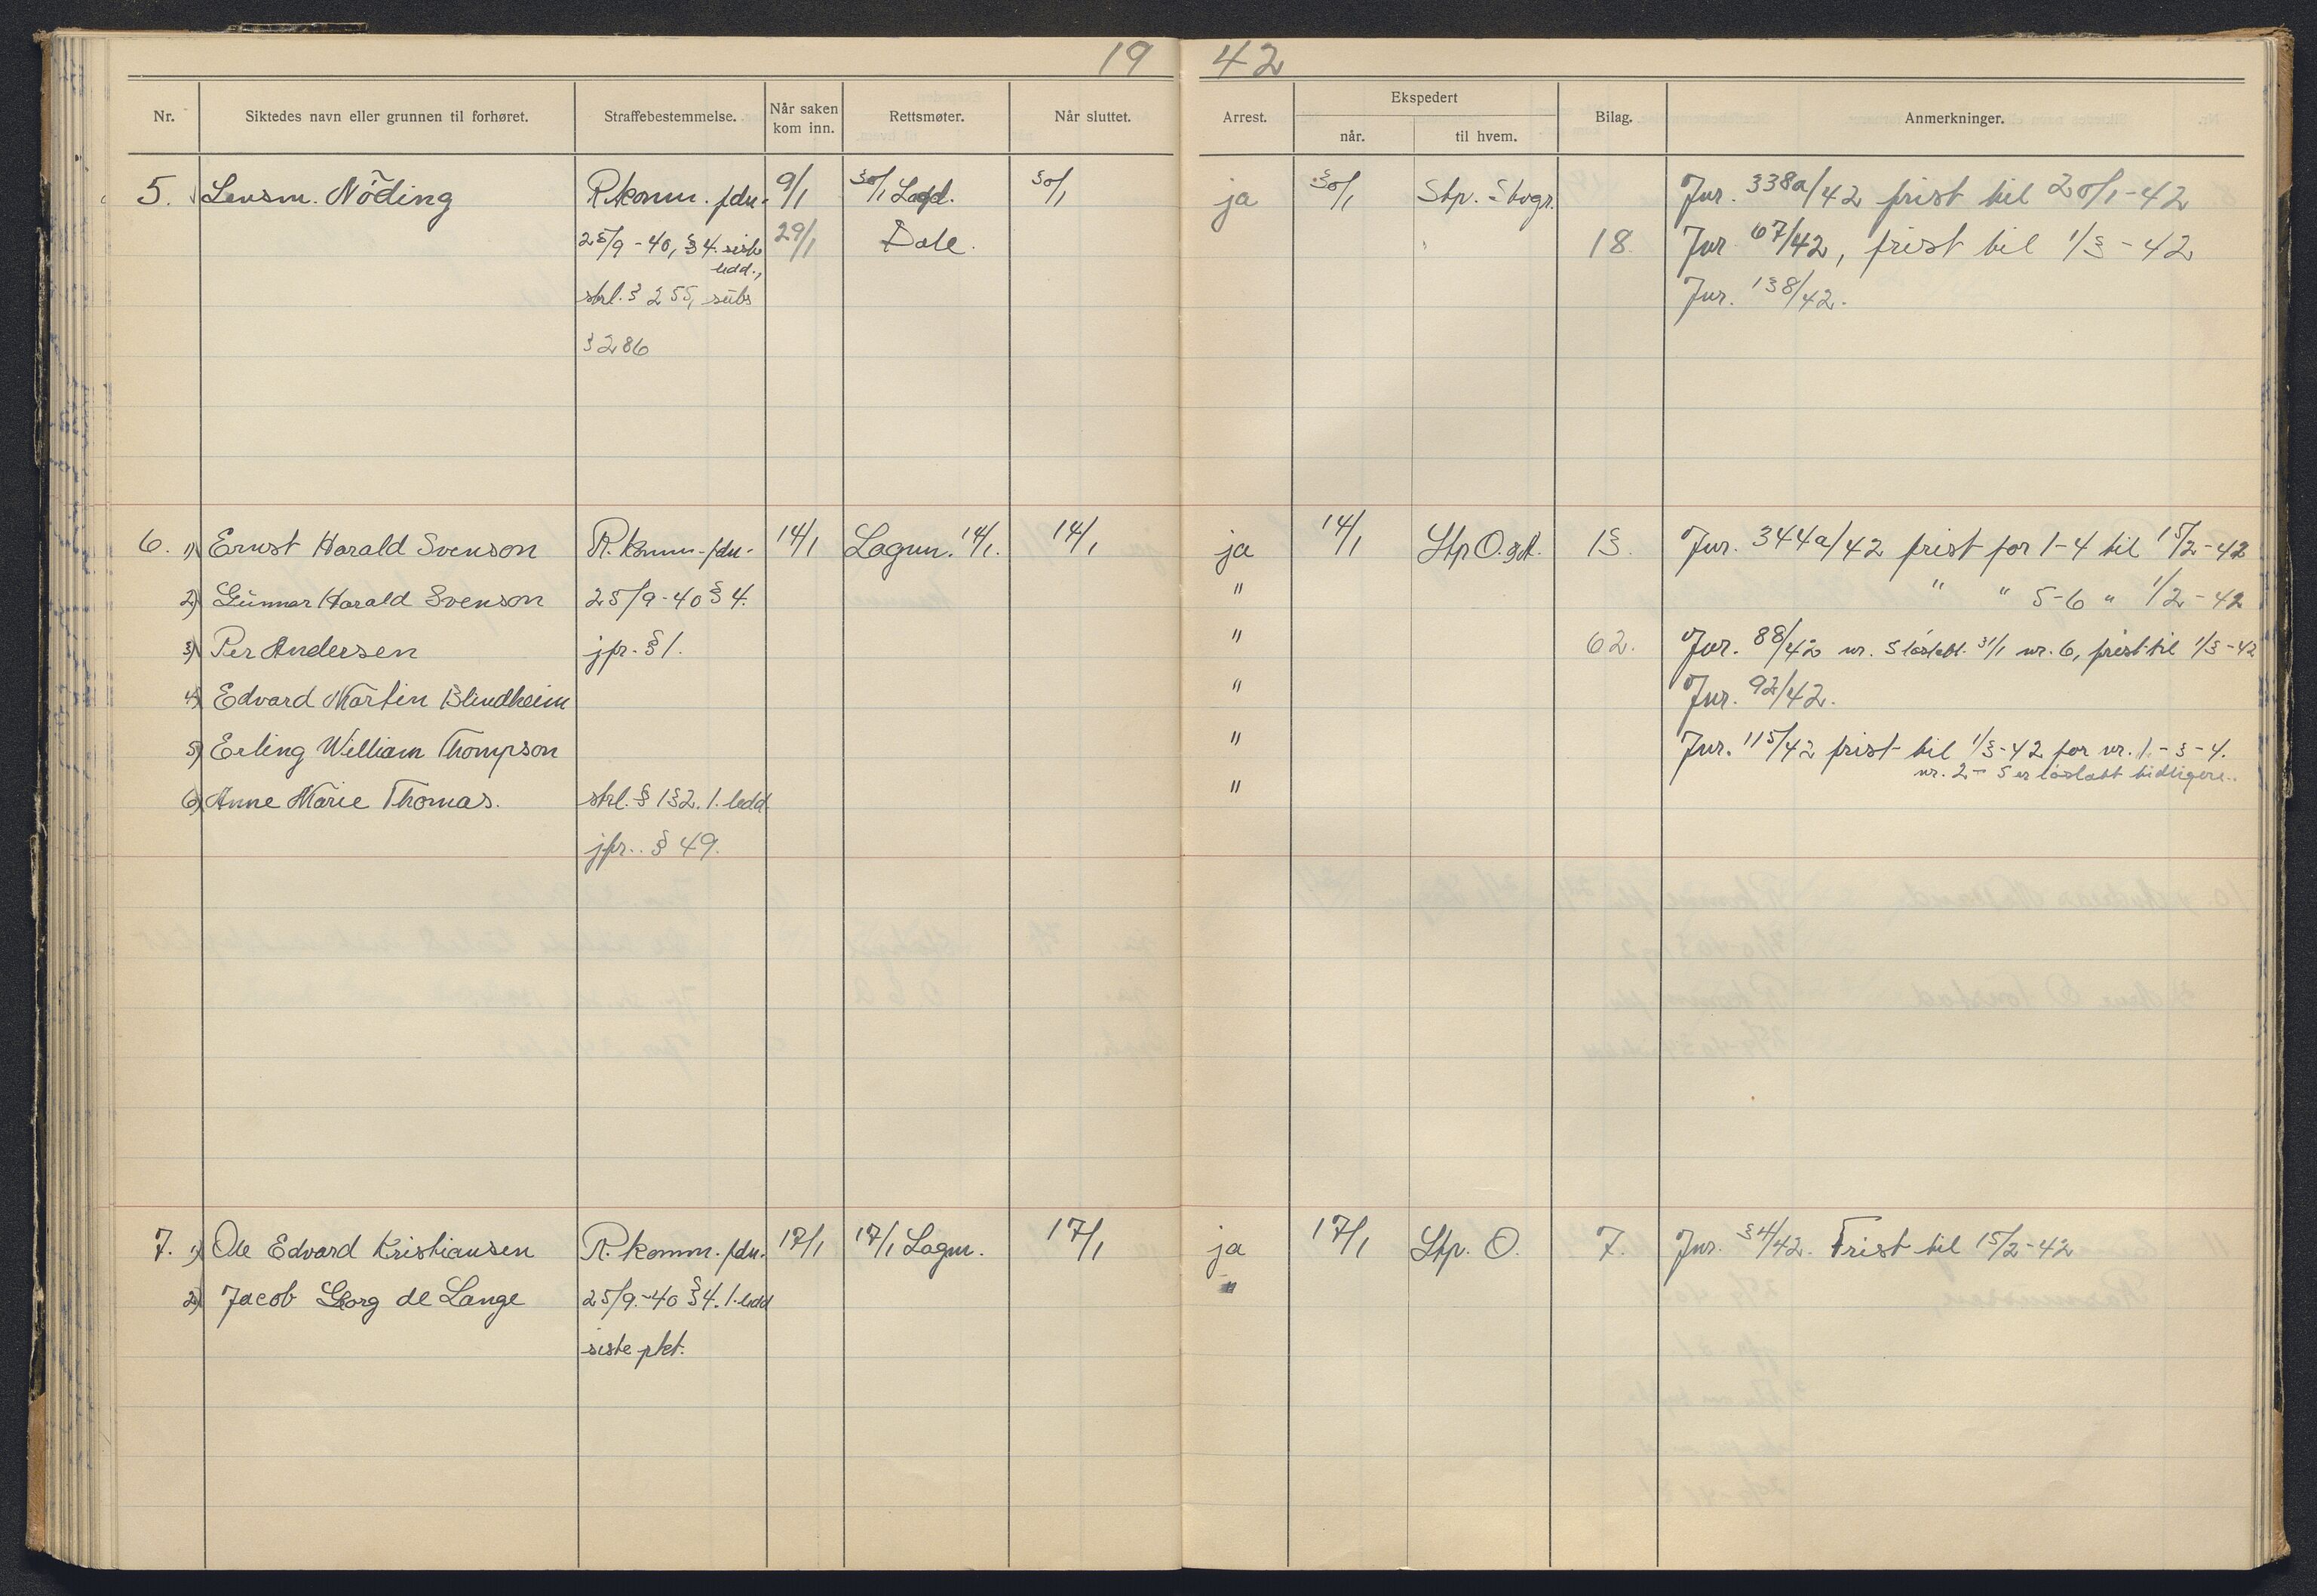 19 42
Nr. Siktedes navn eller grunnen til forhøret. Straffebestemmelse. Når saken kom inn. Rettsmøter. Når sluttet. Arrest. Ekspedert når. til hvem. Bilag. Anmerkninger.
5. Lensm. Nöding R.komm. fdn. 9/1 30/1 30/1 ja 30/1 Stp. Jnr. 338a/42 frist til 20/1-42
25/9-40, §4. siste ledd., 29/1 Dale. 18. Jnr 67/42, frist til 1/3-42
strl. § 255, subs Jnr. 138/42.
§ 286
6. 1) Ernst Harald Svenson R. komm. fdn. 14/1 Lagm. 14/1. 14/1 ja 14/1 Stp O. 13. Jnr. 344a/42 frist for 1-4 til 15/2-42
2) Gunnar Harald Svenson 25/9-40 § 4. " " " 5-6 " 1/2-42
3) Per Andersen jfr. § 1. " 62. Jnr. 88/42 nr. 5 løslatt. 31/1 nr. 6, frist til 1/3-42
4) Edvard Martin Blindheim " Jnr. 92/42.
5) Erling William Thompson " Jnr. 115/42 frist til 1/3-42 for nr. 1.-3-4.
nr. 2- 5 er løslatt tidligere.
6) Anne Marie Thomas. strl. § 132. 1. ledd "
jfr.. § 49.
7. 1) Ole Edvard Kristiansen R. komm. fdn. 17/1 17/1 Lagm. 17/1 ja 17/1 Stp. O. 7. Jnr. 34/42. Frist til 15/2-42
2) Jacob Georg de Lange 25/9.-40 § 4. 1. ledd "
siste pkt.